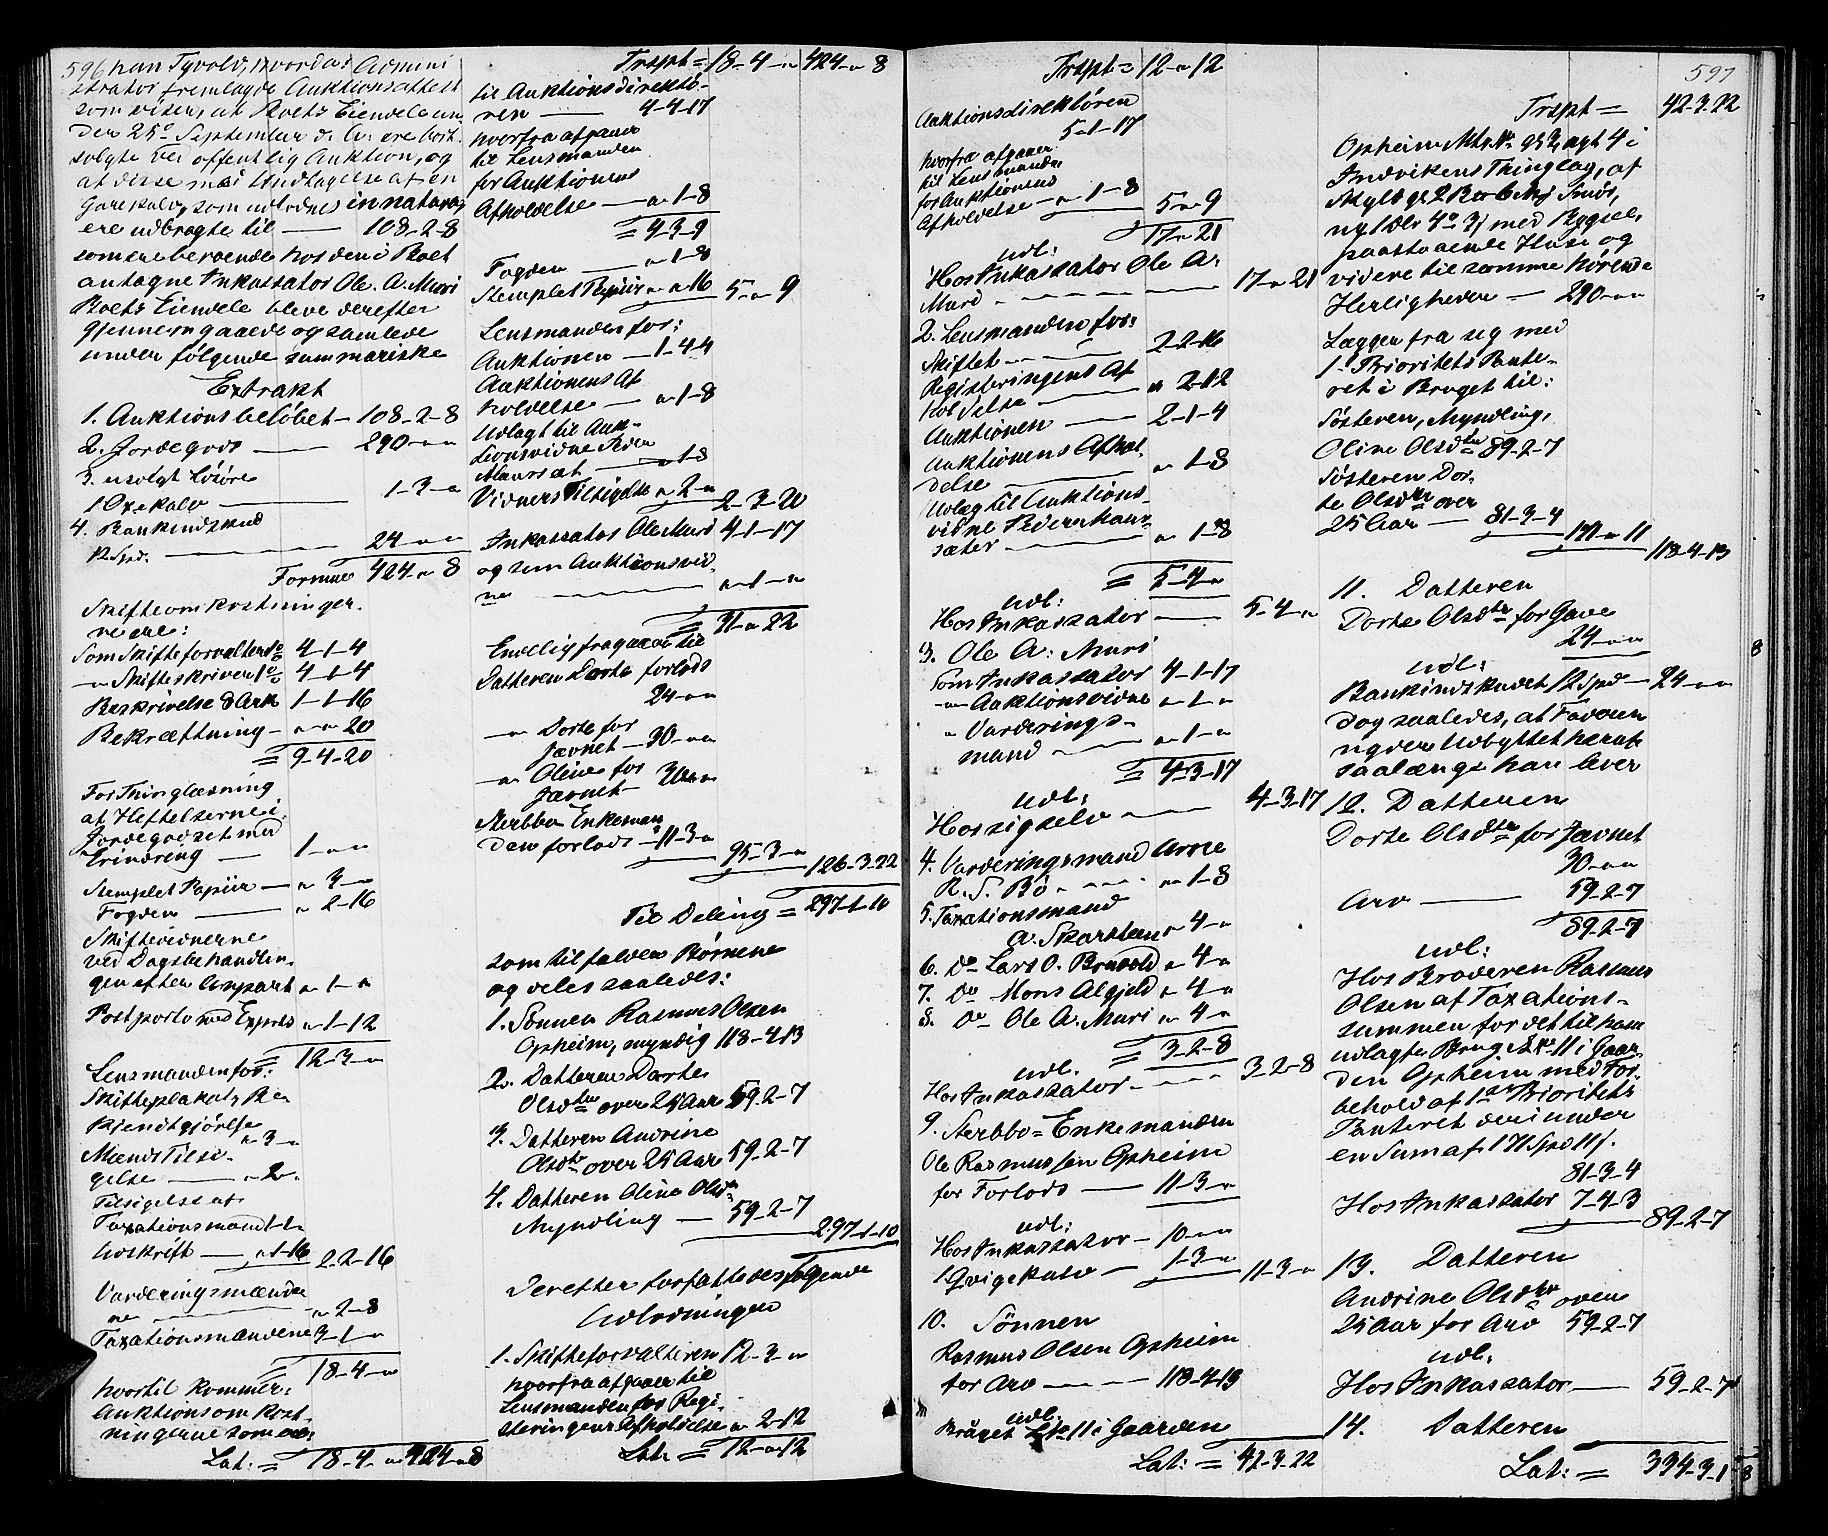 596 han Tyvold, hvorda: Admini
strator fremlagde Auktionsattest
som viser, at Boets Eiendele un
der 25de September d. A. ere bort
solgte ved offentlig Auktion, og
at disse med Undtagelse af en
Gavekalv, som udlodnes in natura,
ere udbragte til — 108-2-8
som ere beroende hos den i Boet
antagne Inkassator Ole A. Muri
Boets Eiendele bleve derefter
gjennemgaaede og samlede
under følgende summariske
Extrakt
1. Auktionsbeløbet — 108-2-8
2. Jordegods — 290-"-"
3. usolgt Løsøre
1 Oxekalv — 1-3-"
4. Bankindskud
12 Spd. — 24-"-"
Formue 424-"-8
Skifteomkostninger
nedre:
Som Skifteforvalter 1% 4-1-4
-"- Skifteskriver 1% 4-1-4
Beskrivelse 8 Ark 1-1-16
Bekræftning — "-"-20
= 9-4-20
For Thinglæsning
af Heftelserne i
Jordegodset med
Erindring — 1-"-"
Stemplet Papiir — "-3-"
Fogden — "-2-16
Skiftevidnerne
ved Dagsbehandlin-
gen efter Conpart "-1-"
Postporto med Exprds "-1-12
= 12-3-"
Lensmanden for:
Skifteplakat, Be
kjendtgjørelse
"-3-"
Mænds Tilsi-
gelse — "-2-
Tilsigelse af
Taxationsmænd 1-1-
Udskrift — "-1-16 2-2-16
Vurderingsmænde
ne — "-2-8
Taxationsmændene 3-1-"
= 18-4-"
hvortil kommer:
Auktionsomkost-
ningerne som er:
Lat: = 18-4-" 424-"-8
Trspt = 18-4-" 424-"-8
til Auktionsdirektø-
ren — 4-4-17
hvorfra afgaaer
til Lensmanden
for Auktionens
Afholdelse — "-1-8
= 4-3-9
Fogden — "-1-8
Stemplet Papiir "-"-16 5-"-9
Lensmanden for:
Auktionen — 1-4-4
Auktionens Af
holdelse — "-1-8
Udlagt til Auk-
tionsvidne Peder
Maursæt — "-1-8
Vidners Tilsigelse "-2-" 2-3-20
Inkassator Ole Muri 4-1-17
og som Auktionsvid.
ne — "-1-"
= 31-"-22
Endelig fragaaer til
Datteren Dorte forlods
24-"-"
-"- Dorte for
Jævnet — 30-"-"
-"- Oline for
Jævnet — 30-"-"
Sterbbo Enkeman
den forlods — 11-3-"
95-3-" 126-3-22
Til Deling = 297-1-10
som tilfalder Børnene
og deles saaledes:
1. Sønnen Rasmus Olsen
Opheim, myndig 118-4-13
2. Datteren Dorte
Olsdter over 25 Aar 59-2-7
3. Datteren Andrine
Olsdter over 25 Aar 59-2-7
4. Datteren Oline Olsdr
Myndling — 59-2-7
297-1-10
Derefter forfattedes følgende
Udlodninger
1. Skifteforvalteren 12-3-"
hvorfra afgaaer til
Lensmanden for Regi-
steringens Afholdelse "-2-12
Lat. = 12-"-12
Trspt = 12-"-12
Auktionsdirektøren
5-1-17
hvorfra afgaaer
til Lensmanden
for Auktionens
Afholdelse — "-1-8 5-"-9
17-"-21
udl:
Hos Inkassator Ole A.
Muri — 17-"-21
2. Lensmanden for:
Skiftet — 2-2-16
Registeringens Af
holdelse — "-2-12
Auktionen — 2-1-4
Auktionens Afhol-
delse — "-1-8
Udlæg til Auktions-
vidne Peder Maur-
sæter — "-1-8
= 5-4-"
udl:
Hos Inkassator — 5-4-"
3. Ole A. Muri
som Inkassator 4-1-17
-"- Auktionsvidne "-1-"
" Vurderings-
mand — "-1-"
= 4-3-17
udl:
Hos sig selv — 4-3-17
4. Vurderingsmand Arne
R. S. Bø — "-1-8
5. Taxationsmand
A. Skarsteen "-4-"
6. Do Lars O. Bruvold "-4-"
7. Do Mons Algjeld "-4-"
8. Do Ole A. Muri "-4-"
= 3-2-8
udl.
Hos Inkassator — 3-2-8
9. Sterbbo = Enkemanden
Ole Rasmussen Opheim
for Forlods — 11-3-"
udl:
Hos Inkassator — 10-"-"
1 Qvigekalv — 1-3-" 11-3-"
10. Sønnen
Rasmus Olsen Opheim
for Arv — 118-4-13
udl:
Bruget LNo 11 i Gaarden
Lat: = 42-3-22
597
Trspt = 42-3-22
Opheim Mtr. No 95, nyt 4 i
Indvikens Thinglag, af
Skyld gl 2 Pd 6 Mk Smør,
ny 1 Dlr 4 Ort 3 ß med Bygsel,
paastaaende Huse og
videre til samme hørende
Herligheder — 290-"-"
Lægger fra sig med
1st Prioritets Pante-
ret i Bruget til:
Søsteren, Myndling,
Oline Olsdter 89-2-7
Søsteren Dor-
te Olsdter over
25 Aar — 81-3-4
171-"-11
118-4-13
11. Datteren
Dorte Olsdter for Gave
24-"-"
udl:
Bankindskudet 12 Spd — 24-"-"
dog saaledes, at Faderen
nyder Udbyttet heraf
saalænge han lever
12. Datteren
Dorte Olsdter for Jævnet
30-"-"
Arv — 59-2-7
89-2-7
udl:
Hos Broderen Rasmus
Olsen af Taxations-
summen for det til ham
udlagte Brug LNo 11 i Gaar
den Opheim med For
behold af 1ste Prioritets
Panteret deri under
en Sum af 171 Spd 11 ß.
81-3-4
Hos Inkassator 7-4-3
89-2-7
13. Datteren
Andrine Olsdter over
25 Aar for Arv 59-2-7
udl.
Hos Inkassator — 59-2-7
14. Datteren
Lat: = 334-3-1